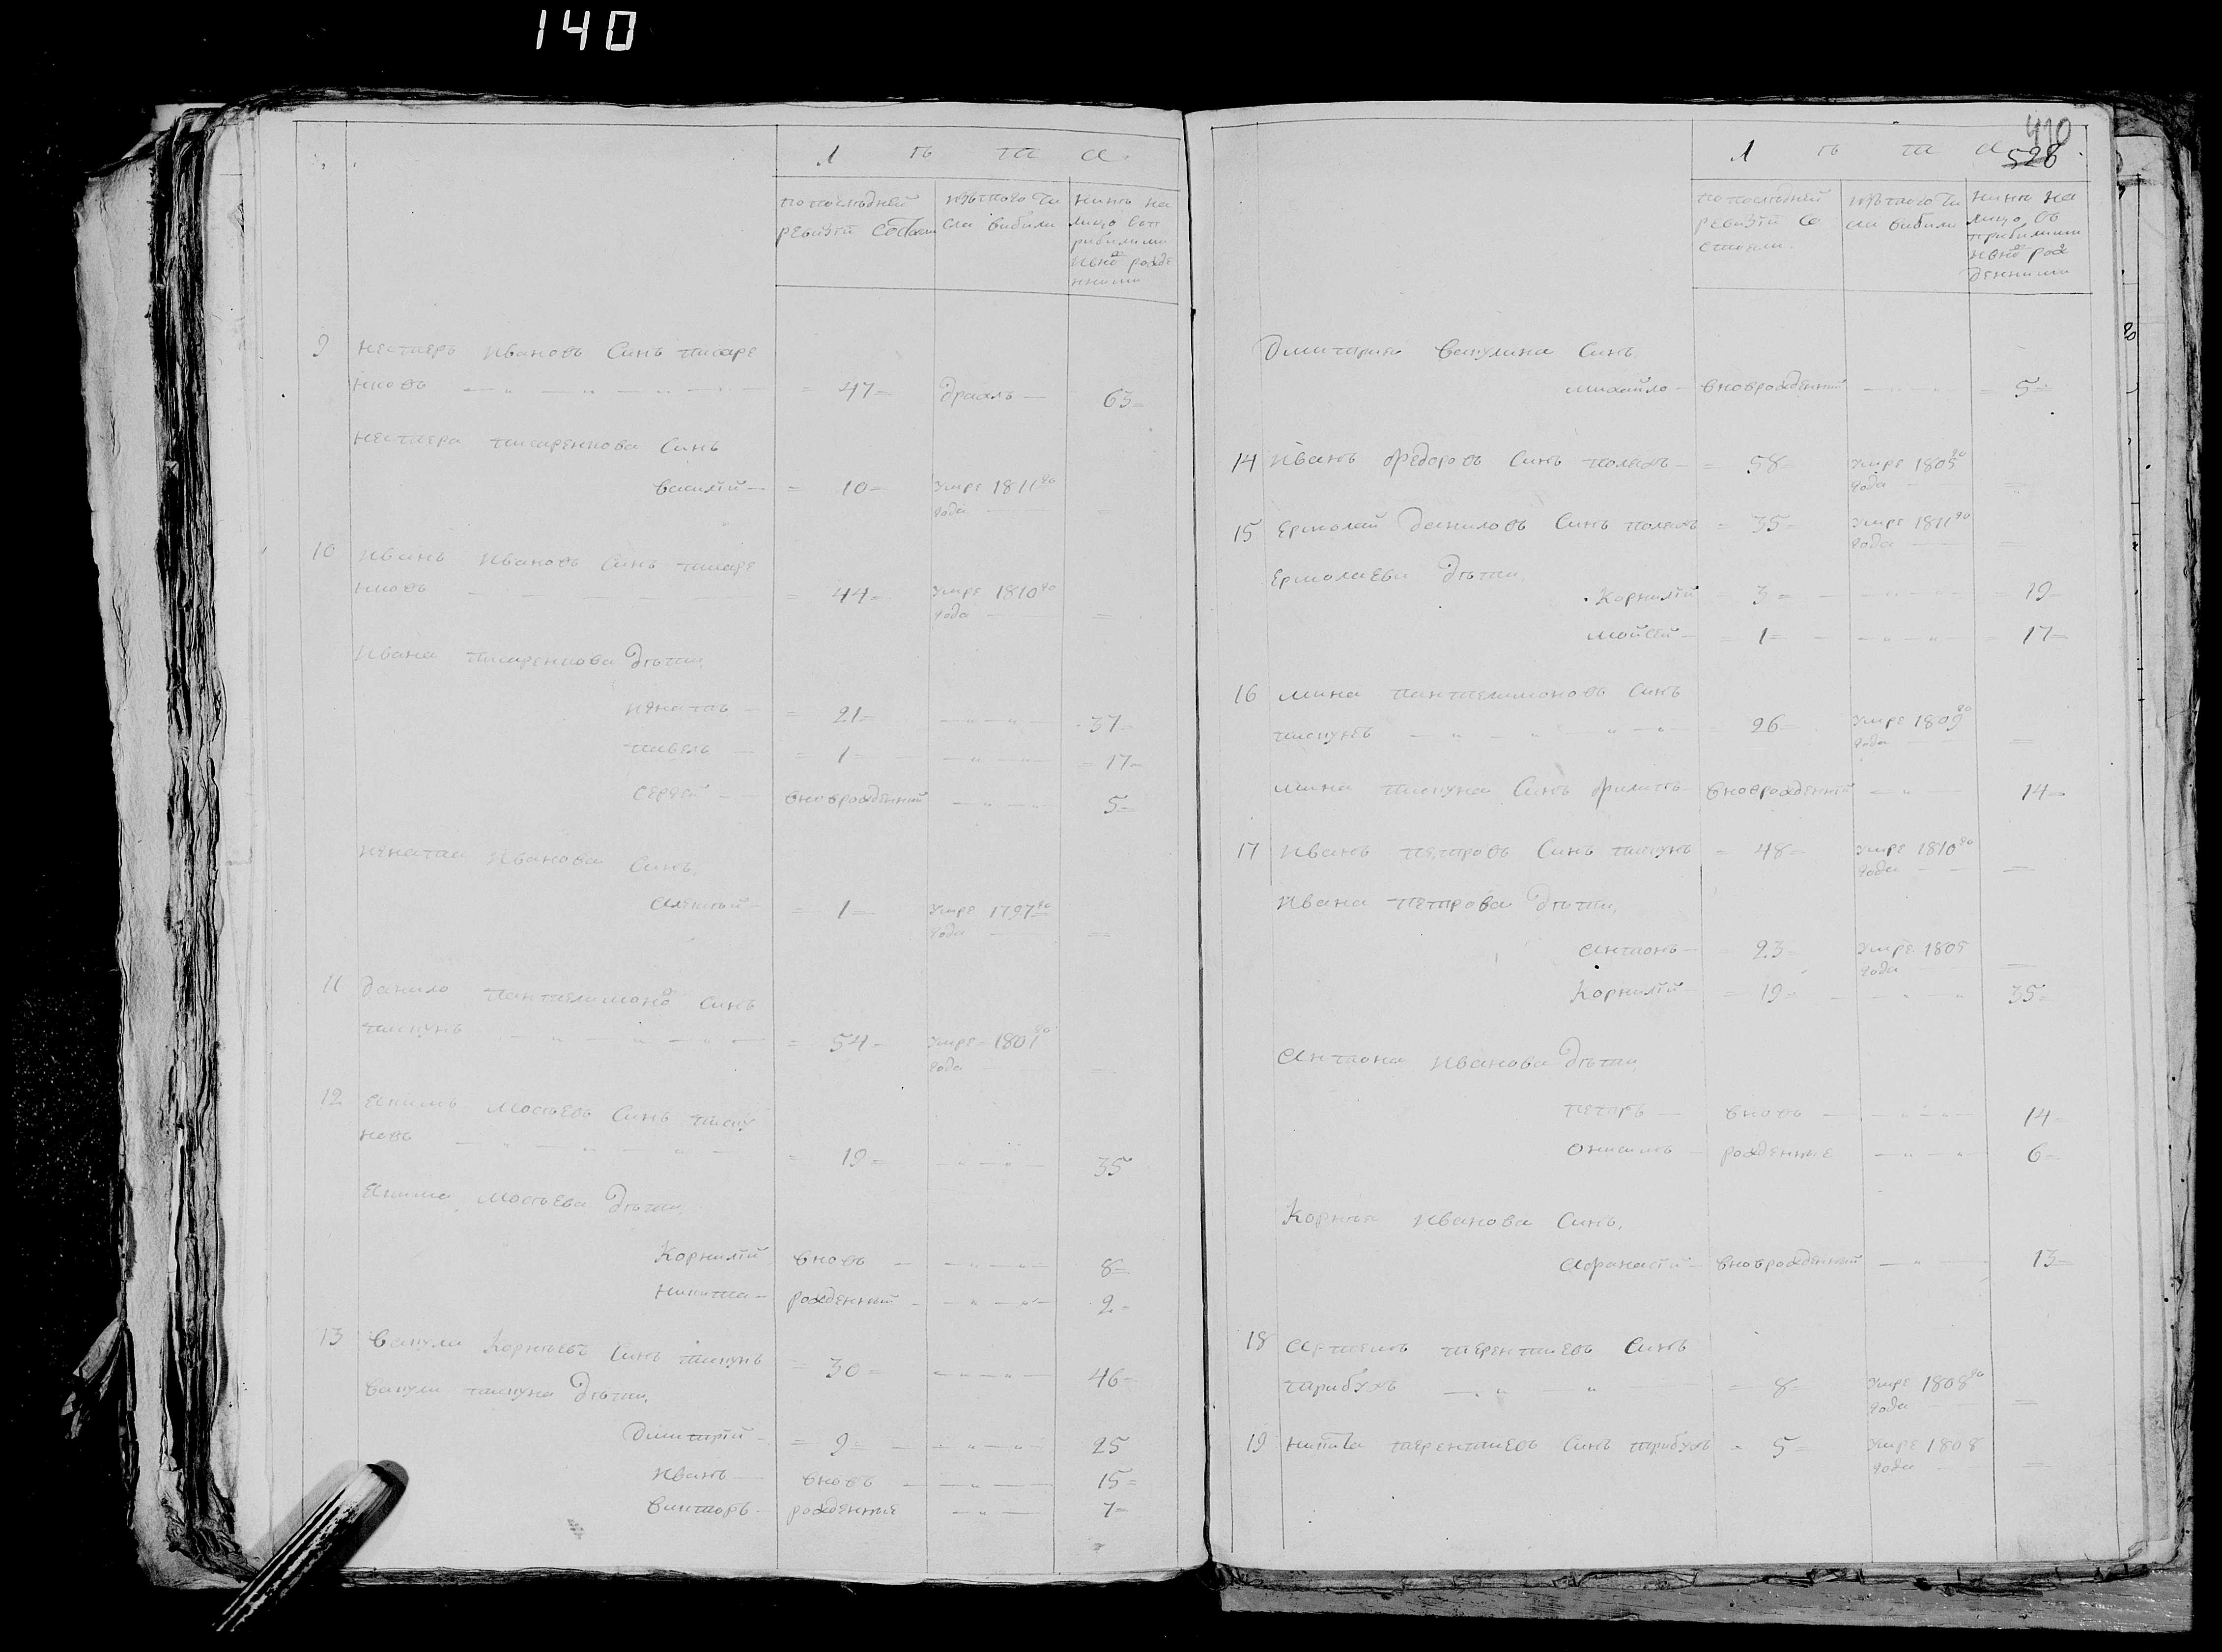 140
Л ѣ та
по последней
ревизіи состоя
изъ того чи
сла вибили
нинѣ на
лицо со п
рибилими
и вно рожде
нними
9 Нестеръ Ивановъ Синъ писаре
нковъ = 47 = 63 =
Нестера писаренкова Синъ
Василій = 10 = Умре 1811го
года =
10 Иванъ Ивановъ Синъ писаре
нковъ = 44 = Умре 1810го
года =
Ивана писаренкова дѣти
Игнатъ = 21 = 37 =
Павелъ = 1 = 17 =
Сергей вноврожденний 5 =
Игната Иванова
Синъ
Алексѣй = 1 = Умре 1797го
года =
11 Данило Пантелимоно Синъ
= 54 = Умре 1801го
года =
12 Синъ
= 19 = 35
дѣти
Корнилій вновъ 8 =
Никита рожденний 2 =
13 Корнѣевъ Синъ = 30 = 46 =
дѣти
Дмитрій = 9 = 25
Иванъ вновъ 15 =
Викторъ рожденние 7 =
410
528
Л ѣ та
по последней
ревизіи со
стояли
изъ того чи
сла вибили
нинѣ на
лицо со
прибилими
и вно рож
денними
Дмитрия Синъ
Михайло вноврожденний = 5 =
14 Иванъ Федоровъ Синъ поляхъ = 58 = Умре 1805го
года =
15 Ермолай Даниловъ Синъ поляхъ = 35 = Умре 1811го
года =
Ермолаева дѣти
Корнилій = 3 = = 19
Мойсей = 1 = = 17 =
16 Мина Пантелимоновъ Синъ
= 26 = Умре 1809го
года =
Мина Синъ Филипъ вноврожденний 14 =
17 Иванъ Петровъ Синъ = 48 = Умре 1810го
года =
Ивана Петрова дѣти
Антонъ = 23 = Умре 1805
года =
Корнилій = 19 = 35 =
Антона Иванова дѣти
Петръ вновъ 14 =
Онисимъ рожденние 6 =
Корнѣя Иванова Синъ
Афанасій вноврожденний 13 =
18 Артемъ Терентиевъ Синъ
трибухъ = 8 = Умре 1808го
года =
19 Никита Терентиевъ Синъ трибухъ = 5 = Умре 1808
года =